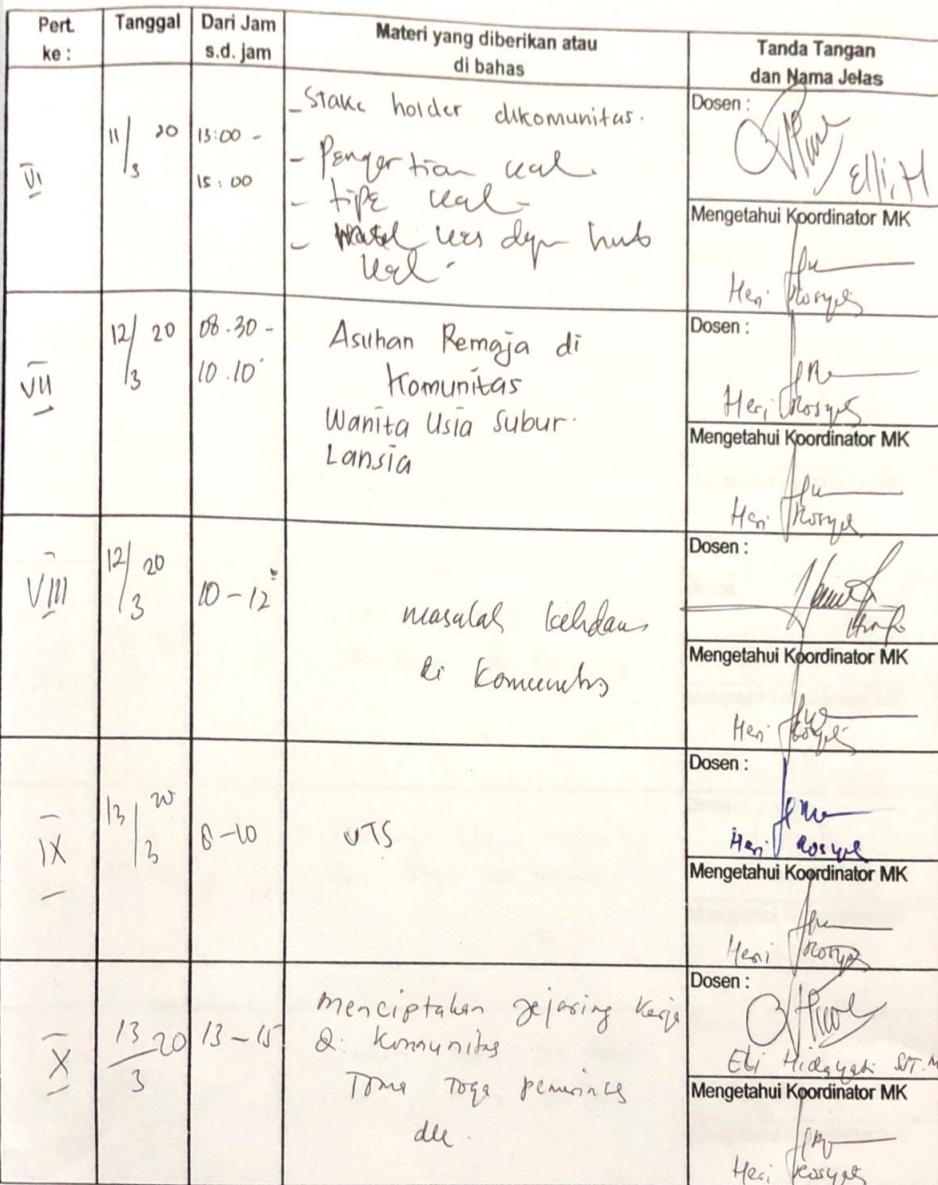 Pert. ke : Tanggal Dari Jam s.d. jam Materi yang diberikan atau di bahas Tanda Tangan dan Nama Jelas
VI
11/3 20
13:00 -
15:00
- Stake holder dikomunitas.
- Pengertian
- tipe
-
Dosen :
Elli, H
Mengetahui Koordinator MK
Heri Rosyati
VII
12/3 20
08.30 -
10.10
Asuhan Remaja di
Komunitas
Wanita Usia Subur
Lansia
Dosen :
Heri Rosyati
Mengetahui Koordinator MK
Heri Rosyati
VIII
12/3 20
10 - 12
masalah
di Komunitas
Dosen :
Mengetahui Koordinator MK
Heri Rosyati
IX
13/3 20
8 - 10
UTS
Dosen :
Heri Rosyati
Mengetahui Koordinator MK
Heri Rosyati
X
13/3 20
13 - 15
Menciptakan jejaring kerja
di Komunitas
Toma Toga
dll.
Dosen :
Elli Hidayati SST. M
Mengetahui Koordinator MK
Heri Rosyati